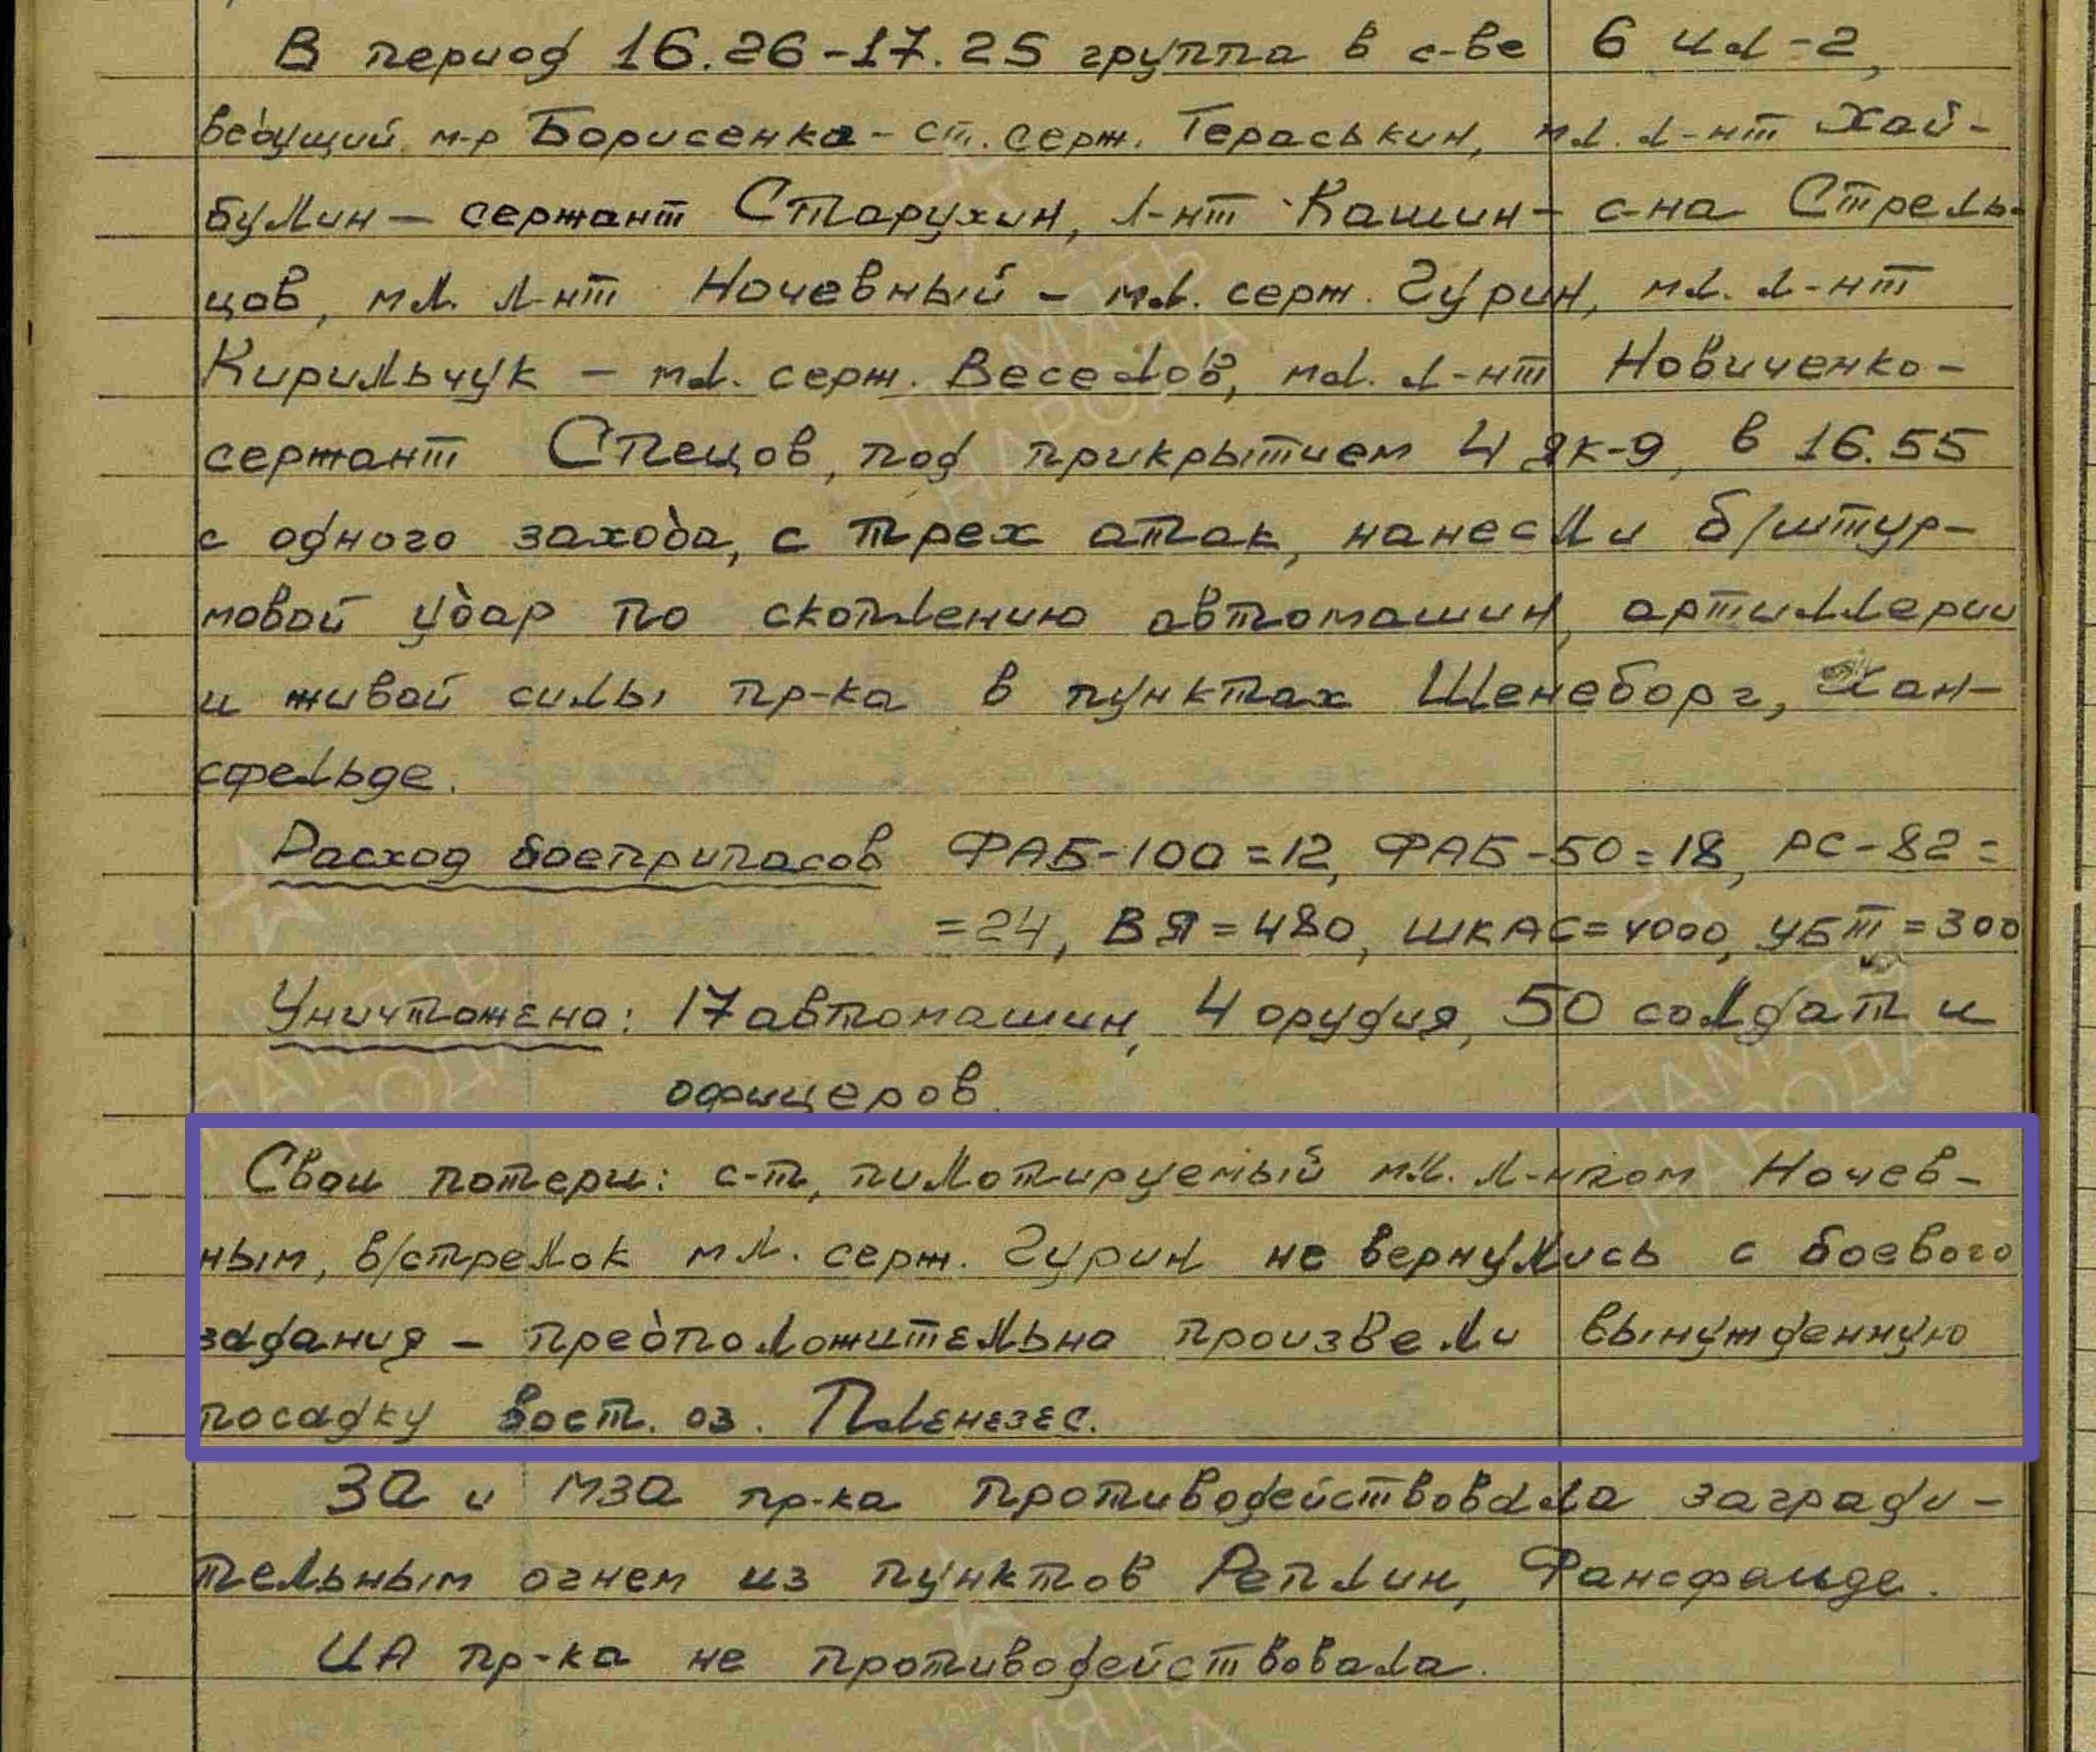 В период 16.26-17.25 группа в с-ве 6 Ил-2,
ведущий м-р Борисенко - ст. серж. Тераськин, мл. л-нт Хай-
булин - сержант Старухин, л-нт Кашин - с-на Стрель-
цов, мл. л-нт Ночевный - мл. серж. Гурин, мл. л-нт
Кирильчук - мл. серж. Веселов, мл. л-нт Новиченко -
сержант Спецов, под прикрытием 4 Як-9, в 16.55
с одного захода, с трех атак, нанесли б/штур-
мовой удар по скоплению автомашин, артиллерии
и живой силы пр-ка в пунктах Шенеборг, Хан-
сфельде.
Расход боеприпасов ФАБ-100=12, ФАБ-50=18, РС-82=
=24, ВЯ=480, ШКАС=4000, УБТ=300
Уничтожено: 17 автомашин, 4 орудия, 50 солдат и
офицеров.
Свои потери: с-т, пилотируемый мл. л-нтом Ночев-
ным, в/стрелок мл. серж. Гурин не вернулись с боевого
задания - предположительно произвели вынужденную
посадку вост. оз. Пленезес.
ЗА и МЗА пр-ка противодействовала загради-
тельным огнем из пунктов Реплин, Рансфельде.
ИА пр-ка не противодействовала.
ПАМЯТЬ
НАРОДА